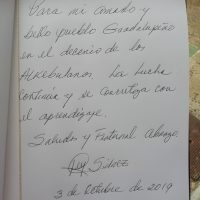 Para mi amado y
bello pueblo Guadalupeño
en el decenio de los
Alkebulanos. La Lucha
continúa y se correliza con
el aprendizaje.
Saludos y Fraternal Abrazo.
3 de Octubre de 2019